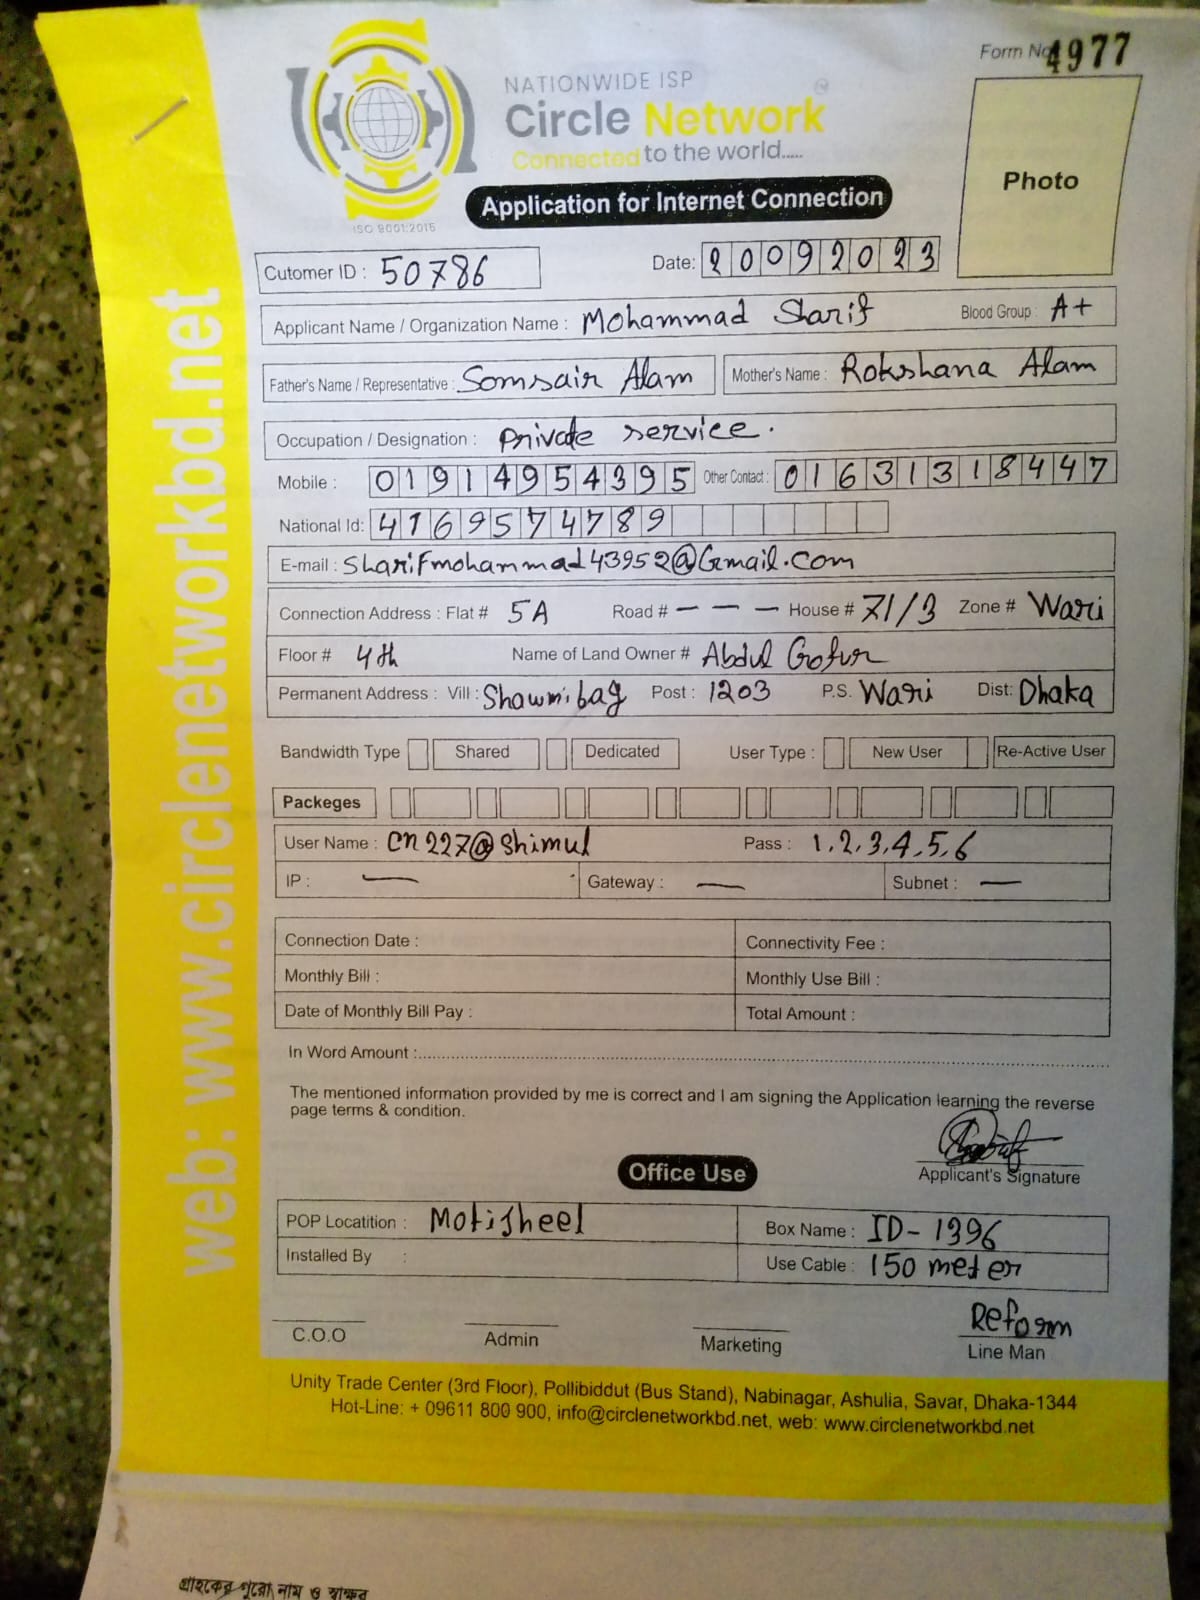 Form No 4977
NATIONWIDE ISP
Circle Network
Connected to the world.....
ISO 9001:2015
Photo
Application for Internet Connection
Cutomer ID : 50786 Date: 20092023
Applicant Name / Organization Name : Mohammad Sharif Blood Group : A+
Father's Name / Representative : Somsair Alam Mother's Name : Rokshana Alam
Occupation / Designation : Private service.
Mobile : 01914954395 Other Contact : 01631318447
National Id: 4169574789
E-mail : sharifmohammad43952@Gmail.com
Connection Address : Flat # 5A Road # — — — House # 71/3 Zone # Wari
Floor # 4th Name of Land Owner # Abdul Gofur
Permanent Address : Vill : Shawmibag Post : 1203 P.S. Wari Dist: Dhaka
Bandwidth Type Shared Dedicated User Type : New User Re-Active User
Packeges
User Name : cn227@shimul Pass : 1,2,3,4,5,6
IP : — Gateway : — Subnet : —
Connection Date : Connectivity Fee :
Monthly Bill : Monthly Use Bill :
Date of Monthly Bill Pay : Total Amount :
In Word Amount :
The mentioned information provided by me is correct and I am signing the Application learning the reverse
page terms & condition.
Applicant's Signature
Office Use
POP Locatition : Motijheel Box Name : ID-1396
Installed By : Use Cable : 150 meter
Reform
C.O.O Admin Marketing Line Man
Unity Trade Center (3rd Floor), Pollibiddut (Bus Stand), Nabinagar, Ashulia, Savar, Dhaka-1344
Hot-Line: + 09611 800 900, info@circlenetworkbd.net, web: www.circlenetworkbd.net
web: www.circlenetworkbd.net
গ্রাহকের পুরো নাম ও স্বাক্ষর